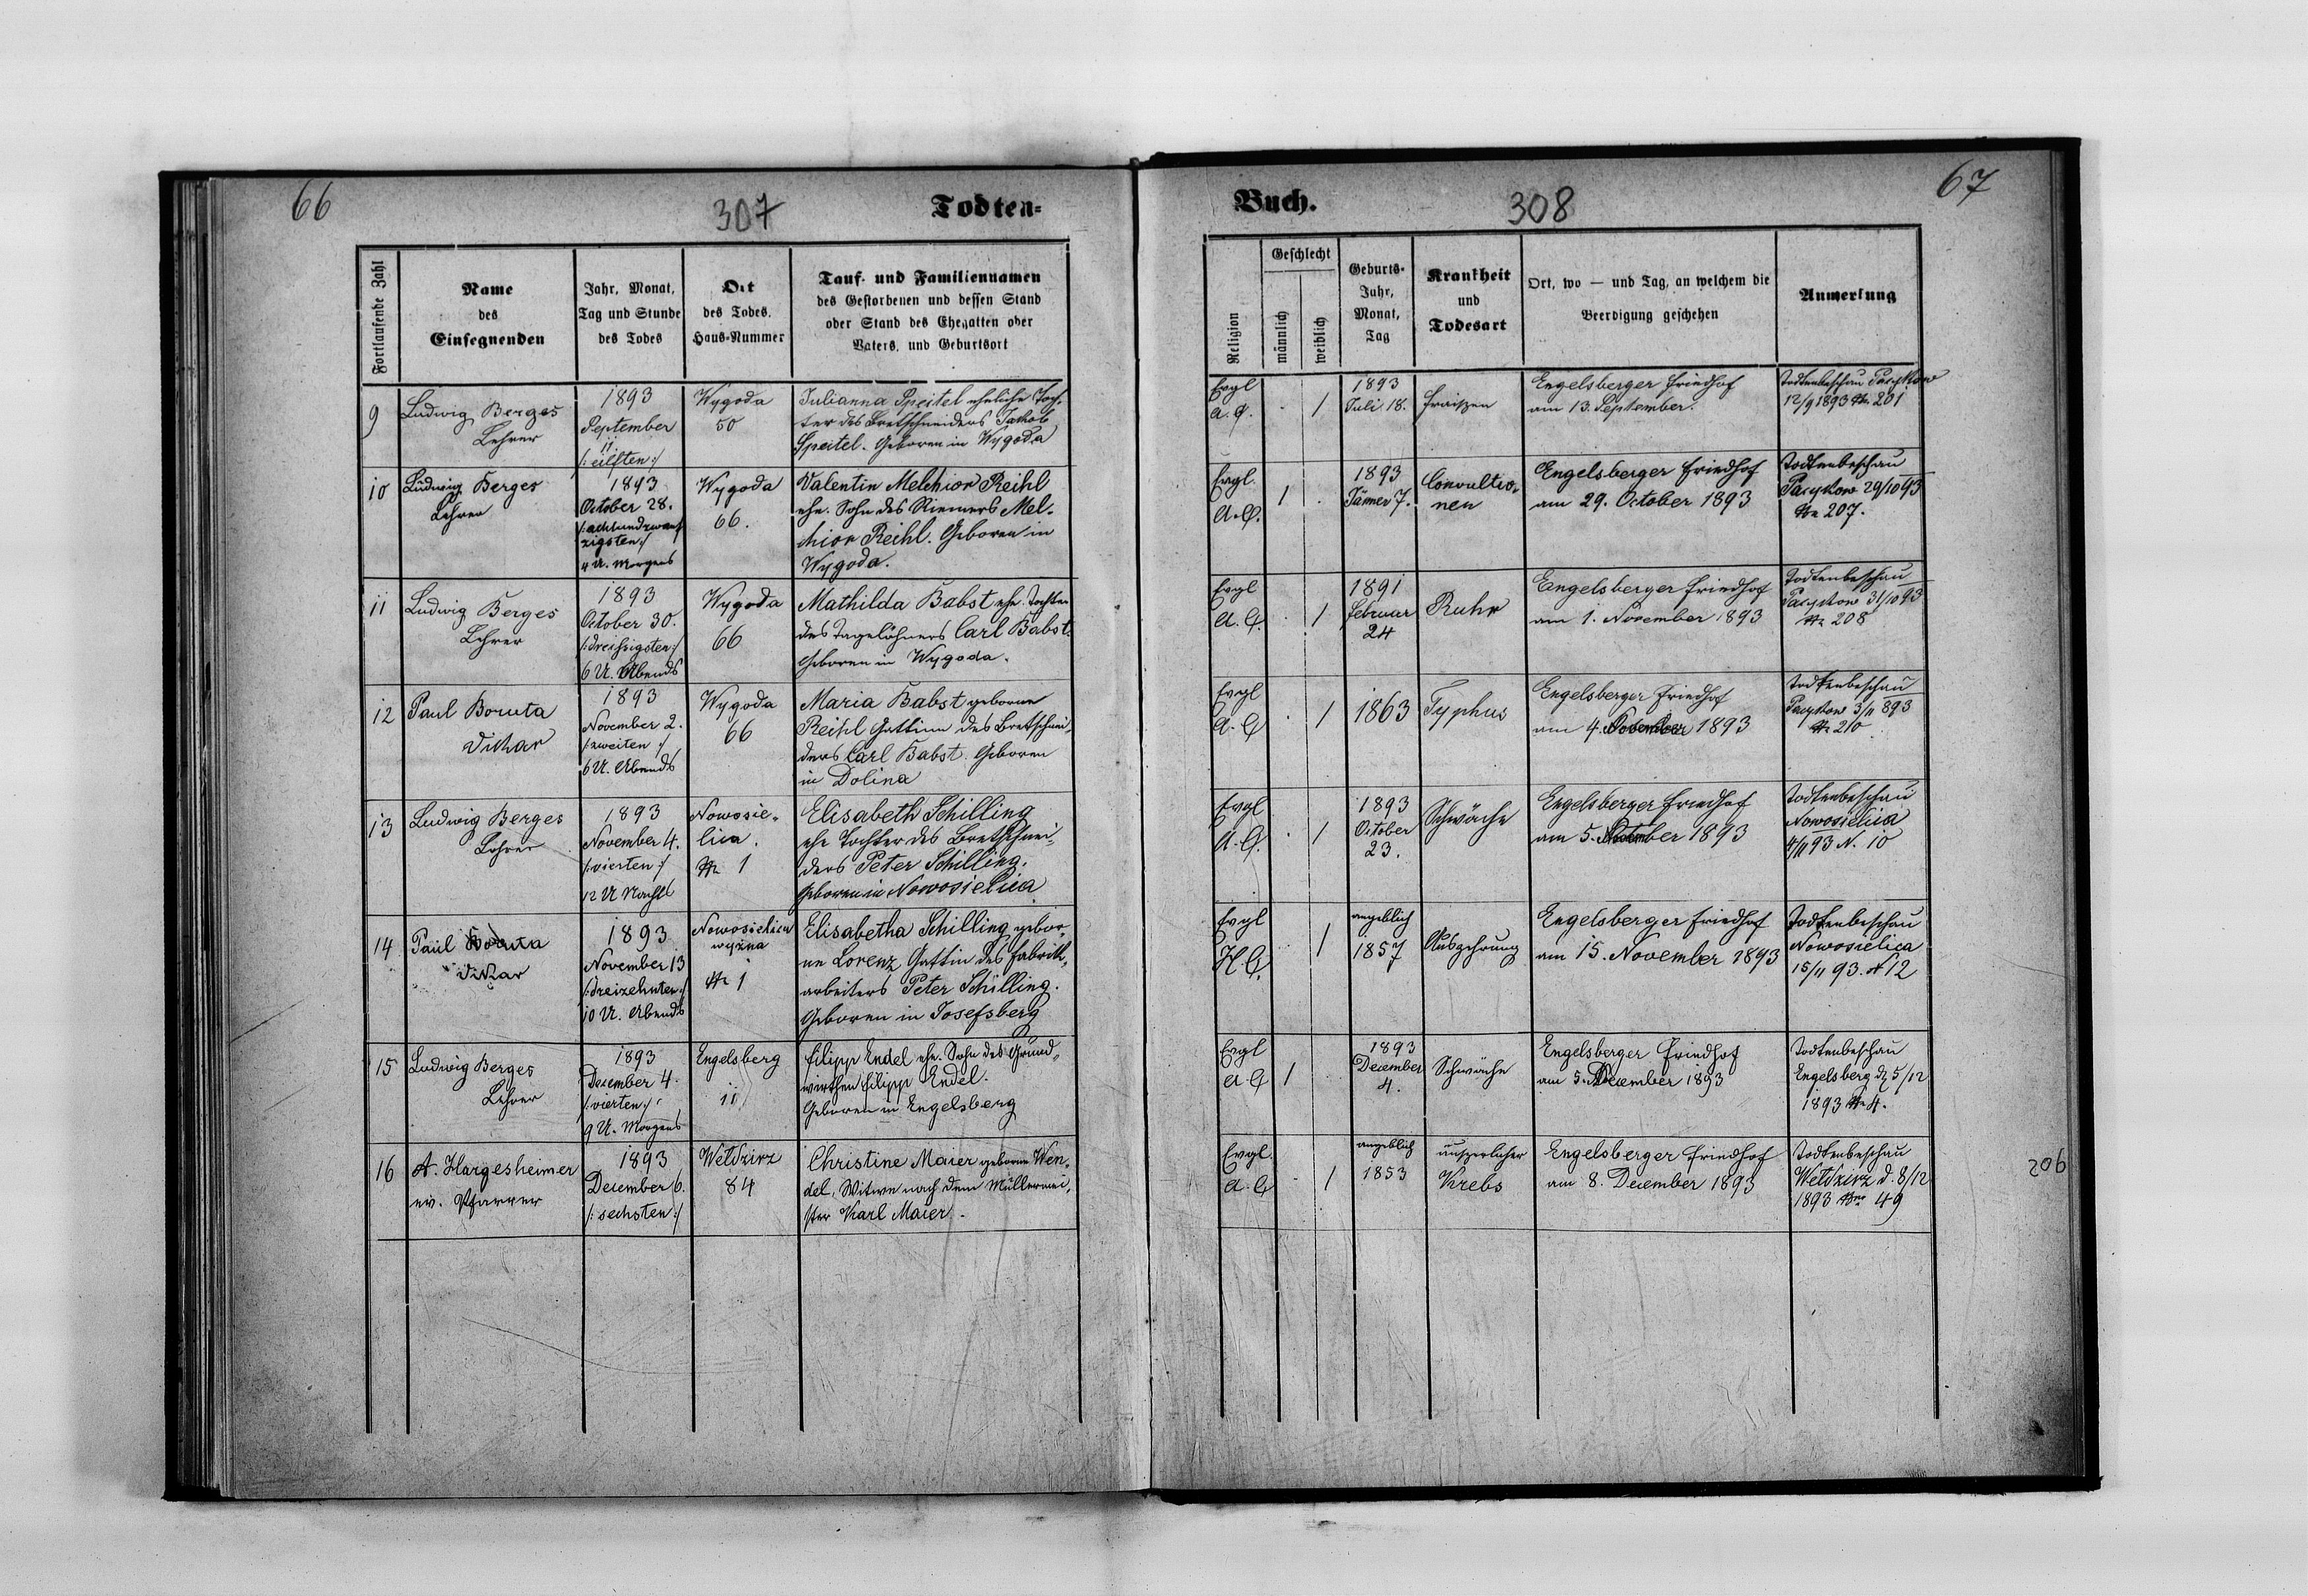 66
307
Todten-
Fortlaufende Zahl
Name
des
Einsegnenden
Jahr, Monat,
Tag und Stunde
des Todes
Ort
des Todes,
Haus-Nummer
Tauf- und Familiennamen
des Gestorbenen und dessen Stand
oder Stand des Ehegatten oder
Vaters, und Geburtsort
9
Ludwig Berges
Lehrer
1893
September
11.
/: eilften :/
Wygoda
50
Julianna Speitel eheliche Toch-
ter des Bretschneiders Jakob
Speitel. Geboren in Wygoda
10
Ludwig Berges
Lehrer
1893
October 28.
/: achtundzwan-
zigsten :/
4 U. Morgens
Wygoda
66.
Valentin Melchior Reihl
ehe. Sohn des Riemers Mel-
chior Reihl. Geboren in
Wygoda.
11
Ludwig Berges
Lehrer
1893
October 30.
/: dreißigsten :/
6 U. Abends
Wygoda
66
Mathilda Babst ehe. Tochter
des Tagelöhners Carl Babst.
Geboren in Wygoda.
12
Paul Boruta
Vikar
1893
November 2.
/: zweiten :/
6 U. Abends
Wygoda
66
Maria Babst geborene
Reihl Gattinn des Bretschnei-
ders Carl Babst. Geboren
in Dolina
13
Ludwig Berges
Lehrer
1893
November 4.
/: vierten :/
12 U Nachts
Nowosie-
lica.
Nr 1
Elisabeth Schilling
ehe Tochter des Bretschnei-
ders Peter Schilling.
Geboren in Nowosielica
14
Paul Boruta
Vikar
1893
November 13
/: dreizehnten :/
10 U. Abends
Nowosielica
wyżna
Nr 1
Elisabetha Schilling gebor-
ne Lorenz Gattin des Fabrik-
arbeiters Peter Schilling.
Geboren in Josefsberg
15
Ludwig Berges
Lehrer
1893
December 4.
/: vierten :/
9 U. Morgens
Engelsberg
11
Filipp Endel ehe. Sohn des Grund-
wirthen Filipp Endel.
Geboren in Engelsberg
16
A. Hargesheimer
ev. Pfarrer
1893
December 6.
/: sechsten :/
Weldzirz
84
Christine Maier geborne Wen-
del, Witwe nach dem Müllermei-
ster Karl Maier.
Buch.
308
67
Religion
Geschlecht
männlich
weiblich
Geburts-
Jahr,
Monat,
Tag
Krankheit
und
Todesart
Ort, wo — und Tag, an welchem die
Beerdigung geschehen
Anmerkung
Evgl
A. C.
1
1893
Juli 18.
Fraißen
Engelsberger Friedhof
am 13. September.
Todtenbeschau Pacykow
12/9 1893 Nr. 201
Evgl.
A. C.
1
1893
Jänner 7.
Convultio-
nen
Engelsberger Friedhof
am 29. October 1893
Todtenbeschau
Pacykow 29/10 93
Nr 207.
Evgl
A. C.
1
1891
Februar
24
Ruhr
Engelsberger Friedhof
am 1. November 1893
Todtenbeschau
Pacykow 31/10 93
Nr 208
Evgl
A. C
1
1863
Typhus
Engelsberger Friedhof
am 4. November 1893
Todtenbeschau
Pacykow 3/11 893
Nr 210
Evgl
A. C.
1
1893
October
23.
Schwäche
Engelsberger Friedhof
am 5. November 1893
Todtenbeschau
Nowosielica
4/11 93 N. 10
Evgl
H. C.
1
angeblich
1857
Auszehrung
Engelsberger Friedhof
am 15. November 1893
Todtenbeschau
Nowosielica
15/11 93. N 12
Evgl
A. C
1
1893
December
4.
Schwäche
Engelsberger Friedhof
am 5. December 1893
Todtenbeschau
Engelsberg d 5/12
1893 Nr 4.
Evgl.
A. C
1
angeblich
1853
äußerlicher
Krebs
Engelsberger Friedhof
am 8. December 1893
Todtenbeschau
Weldzirz d. 8/12
1893 Nro 49
206